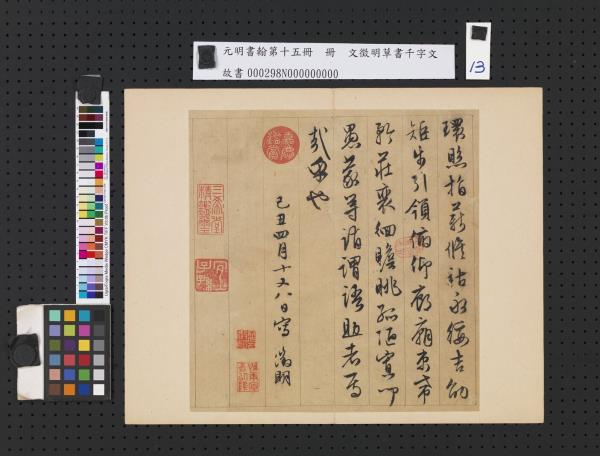 元明書翰第十五冊　冊　文徵明草書千字文
故書 000298N000000000
13
環照指薪脩祜永綏吉劭
矩步引領俯仰廊廟束帶
矜莊裴徊瞻眺孤陋寡聞
愚蒙等誚謂語助者焉
哉乎也
己丑四月十又八日寫 徵明
嘉慶鑑賞
三希堂精鑑璽
宜子孫